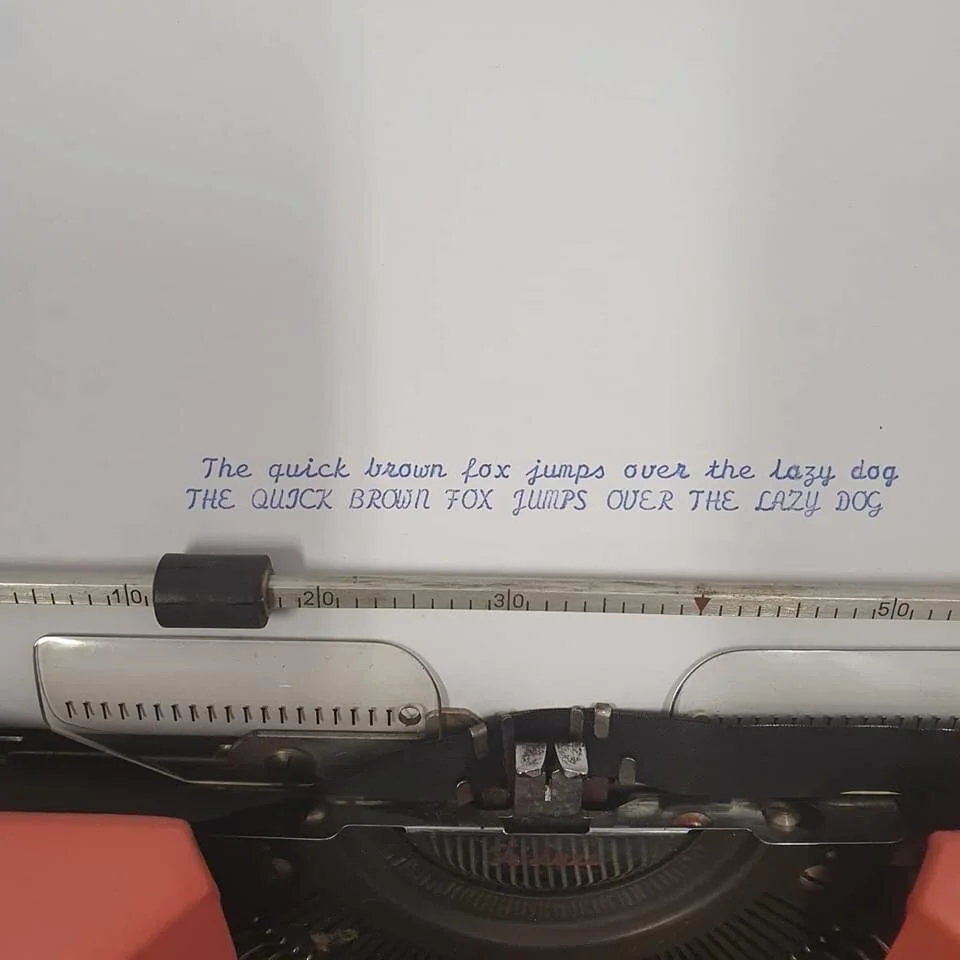 The quick brown fox jumps over the lazy dog
THE QUICK BROWN FOX JUMPS OVER THE LAZY DOG
10 20 30 50